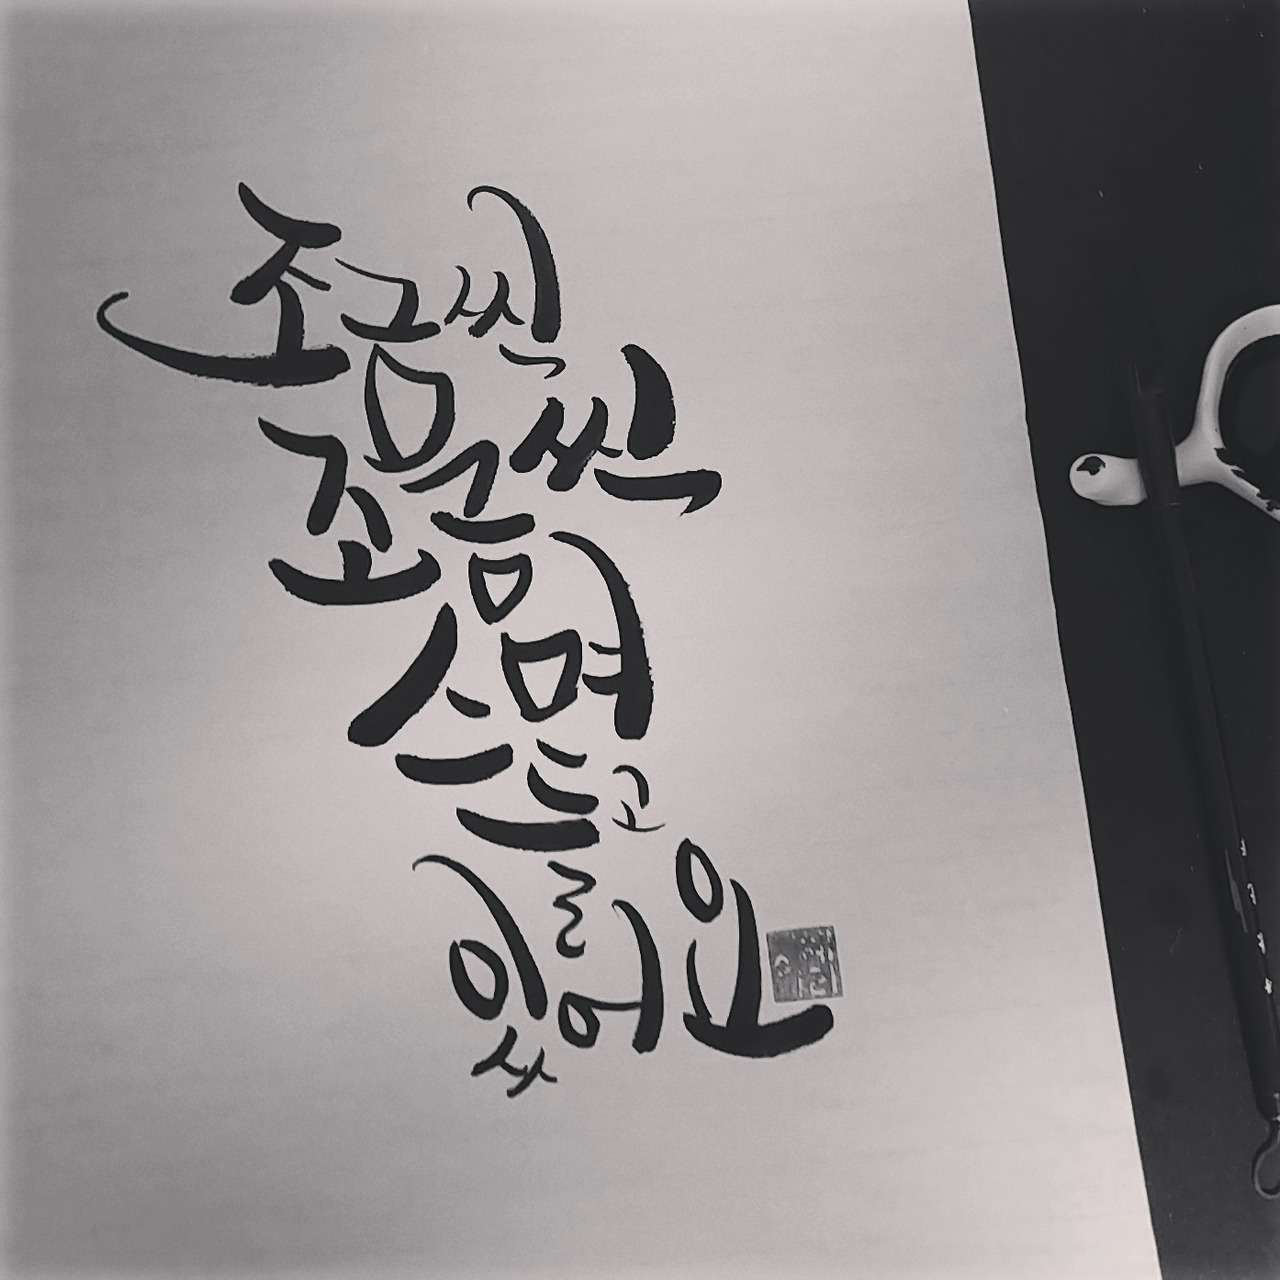 조금씩
조금씩
스며들고
있어요